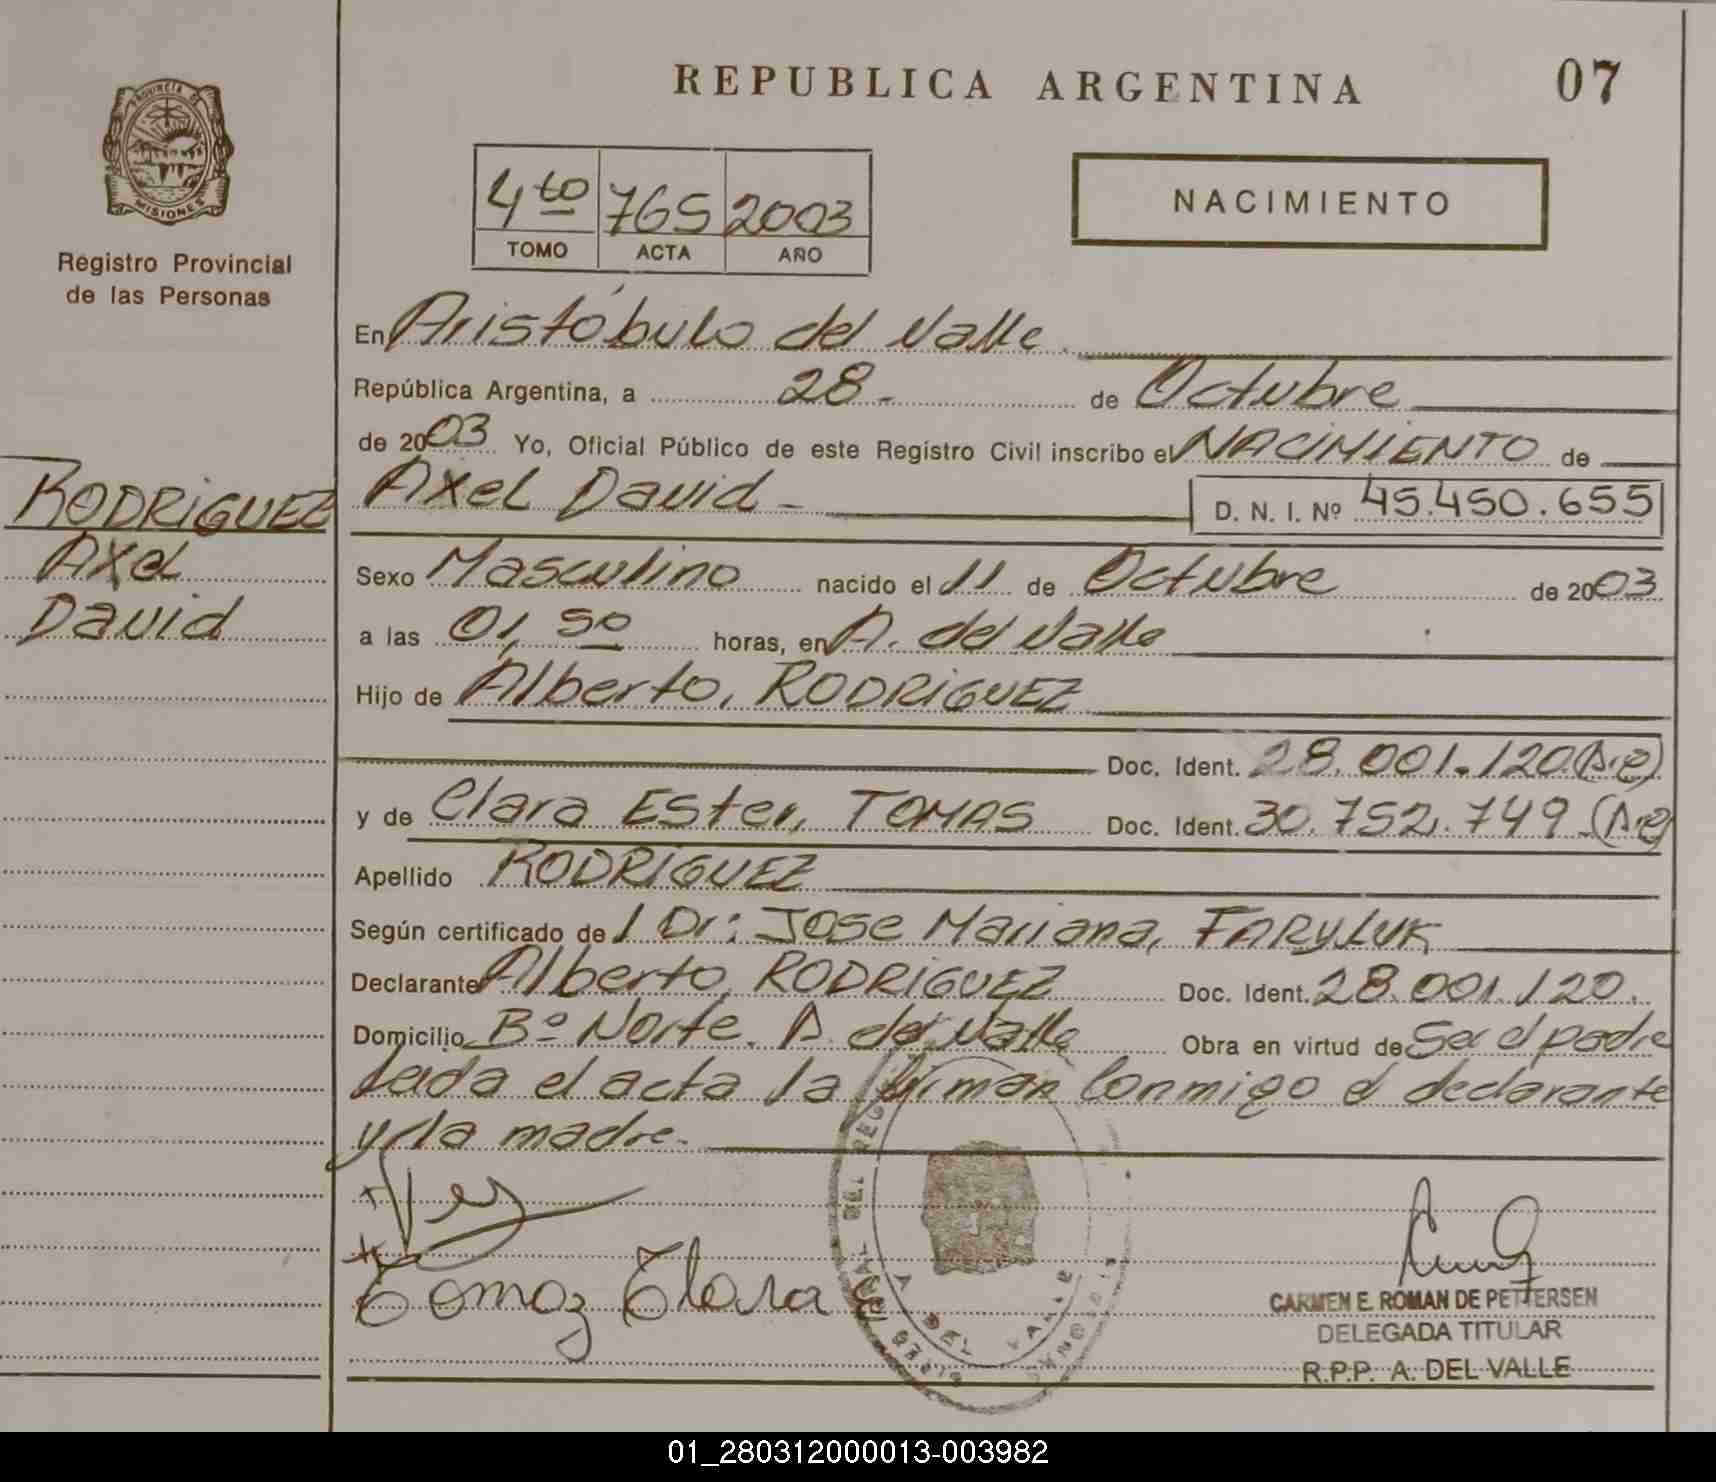 REPUBLICA ARGENTINA
07
PROVINCIA DE
MISIONES
Registro Provincial
de las Personas
4to 765 2003
TOMO ACTA AÑO
NACIMIENTO
En Aristóbulo del Valle.
República Argentina, a 28 - de Octubre
de 2003 Yo, Oficial Público de este Registro Civil inscribo el NACIMIENTO de
RODRIGUEZ
Axel
David
Axel David - D. N. I. Nº 45.450.655
Sexo Masculino nacido el 11 de Octubre de 2003
a las 01,50 horas, en A. del Valle
Hijo de Alberto, RODRIGUEZ
Doc. Ident. 28.001.120
y de Clara Ester, TOMAS Doc. Ident. 30.752.749
Apellido RODRIGUEZ
Según certificado del Dr: Jose Mariana, FARYLUK
Declarante Alberto, RODRIGUEZ Doc. Ident. 28.001.120.
Domicilio Bº Norte. A. del Valle Obra en virtud de Ser el padre
Leida el acta la firman Conmigo el declarante
y la madre.
Tomaz Clara E
DEL VALLE
CARMEN E. ROMAN DE PETTERSEN
DELEGADA TITULAR
R.P.P. A. DEL VALLE
01_280312000013-003982